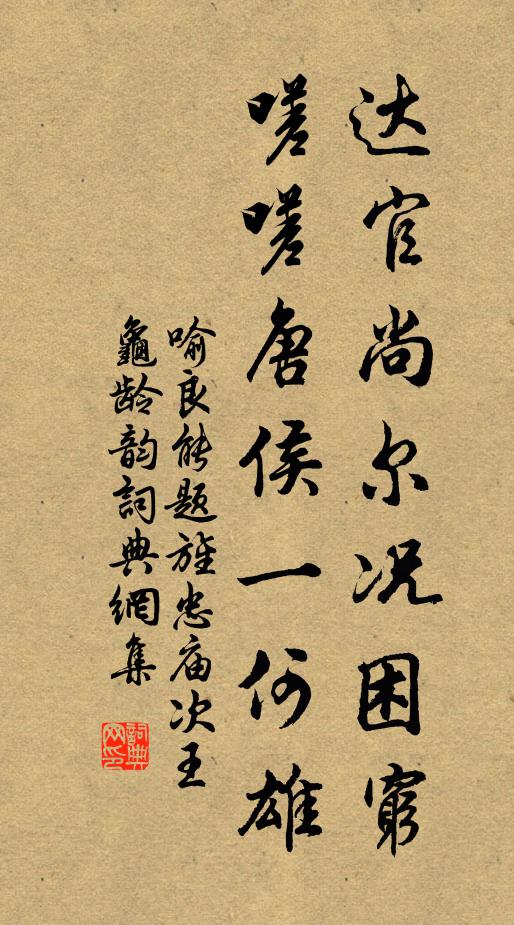 达官尚尔况困穷
嗟嗟唐侯一何雄
喻良能题旌忠庙次王
龜龄韵詞典網集
詞典网印